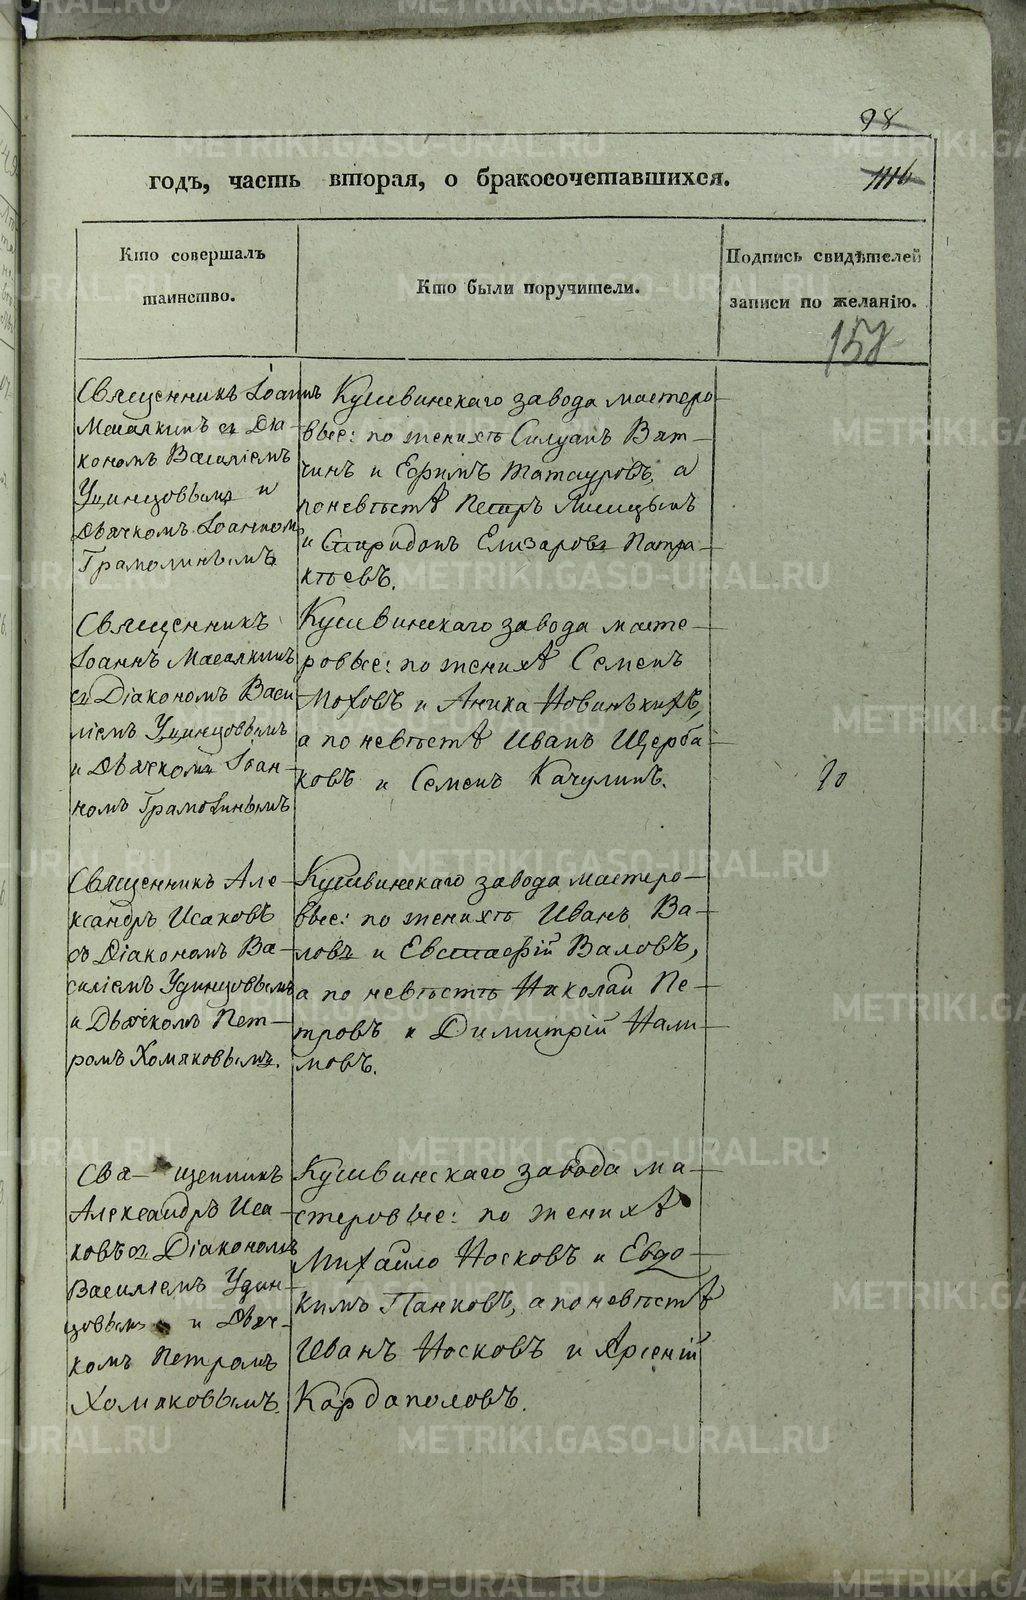 98
годъ, часть вторая, о бракосочетавшихся.
1116
Кто совершалъ
таинство.
Кто были поручители.
Подпись свидѣтелей
записи по желанію.
158
Священникъ Іоаннъ
Масалкинъ съ Діа-
кономъ Василіемъ
Удинцовымъ и
Дьячкомъ Іоанномъ
Грамолинымъ.
Кушвинскаго завода мастеро-
вые: по женихѣ Силуанъ Вят-
чинъ и Ефимъ Татауровъ, а
по невѣстѣ Петръ Лисицынъ
и Спиридонъ Елизаровъ Патра-
кѣевъ.
Священникъ
Іоаннъ Масалкинъ
съ Діакономъ Васи
ліемъ Удинцовымъ
и Дьячкомъ Іоан-
номъ Грамолинымъ
Кушвинскаго завода масте-
ровые: по женихѣ Семенъ
Моховъ и Аника Новинькихъ,
а по невѣстѣ Иванъ Щерба-
ковъ и Семенъ Качулинъ.
Священникъ Але-
ксандръ Исаковъ
съ Діакономъ Ва-
силіемъ Удинцовымъ
и Дьячкомъ Пет-
ромъ Хомяковымъ.
Кушвинскаго завода мастеро-
вые: по женихѣ Иванъ Ва-
ловъ и Евстафій Валовъ,
а по невѣстѣ Николай Пе-
тровъ и Димитрій Нали-
мовъ.
Свя- щенникъ
Александръ Иса-
ковъ съ Діакономъ
Василіемъ Удин-
цовымъ и Дьяч-
комъ Петромъ
Хомяковымъ.
Кушвинскаго завода ма-
стеровые: по женихѣ
Михайло Носковъ и Евдо-
кимъ Панковъ, а по невѣстѣ
Иванъ Носковъ и Арсеній
Кардаполовъ.